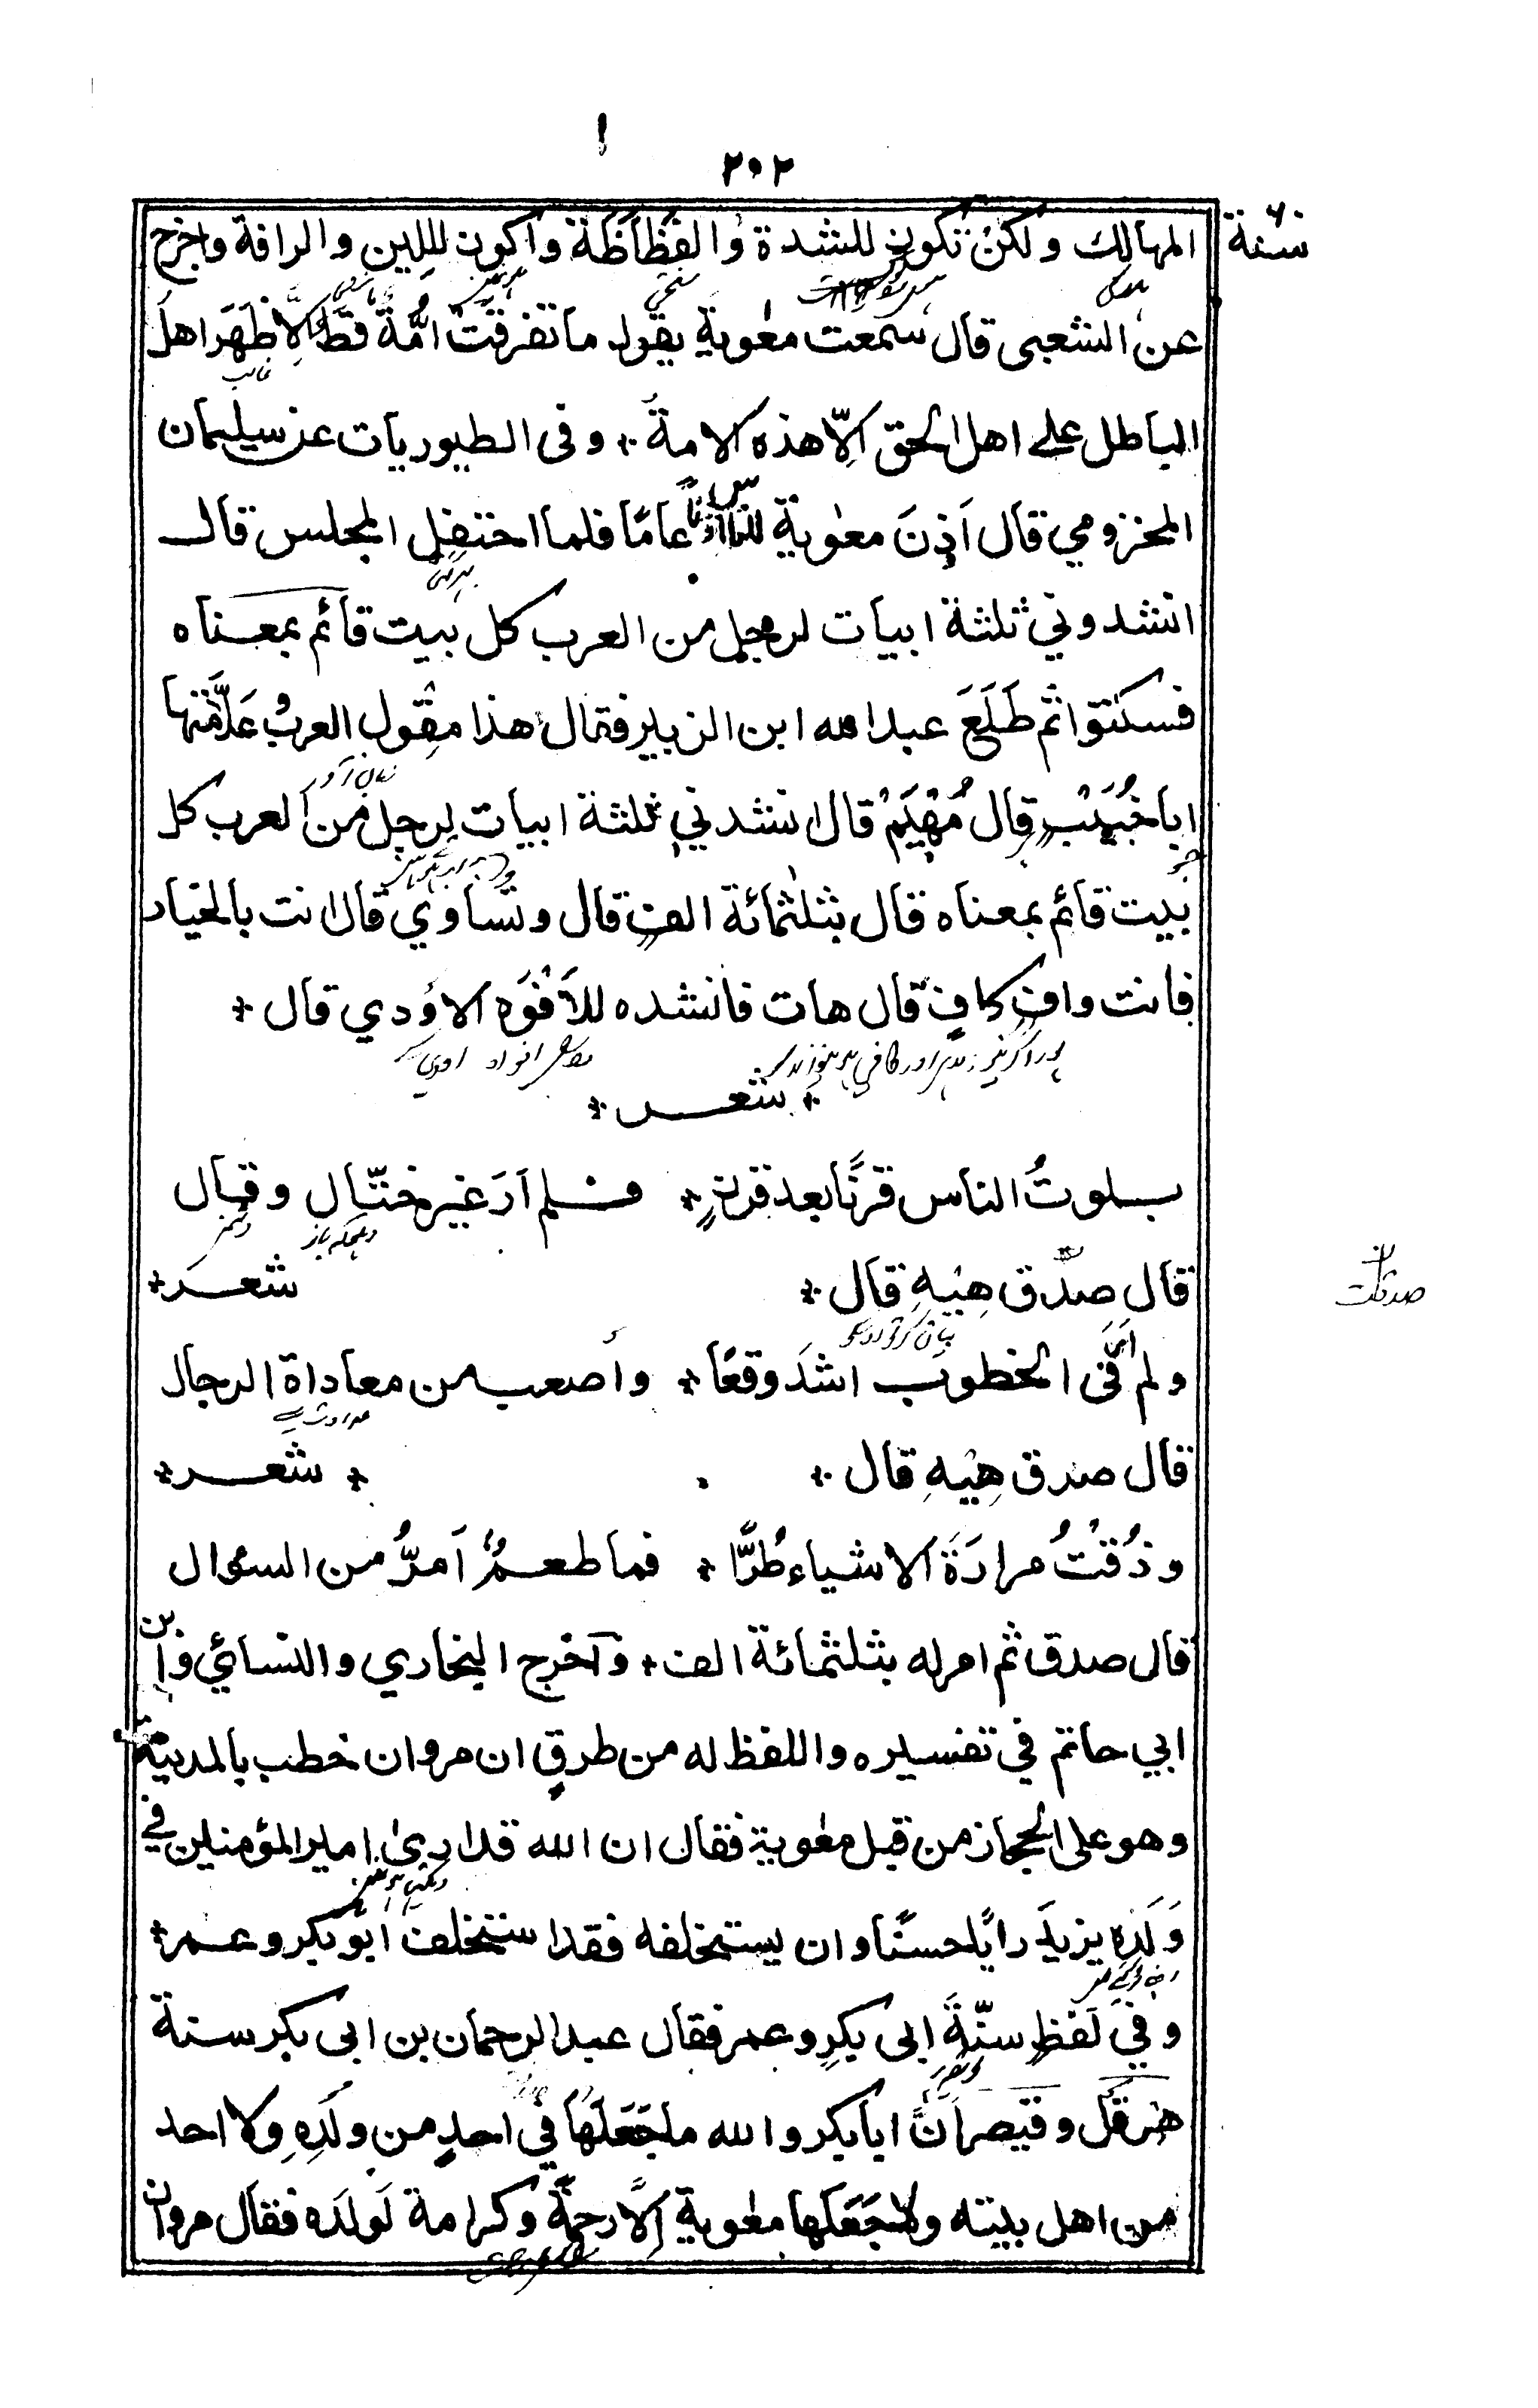 ٢٠٢
المهالك ولكن تكون للشدة والفظاظة واكون لللين والرافة واخرج
عن الشعبى قال سمعت معٰوية يقول ما تفرقت اُمَّة قط اِلّا ظَهَرَ اهل
الباطل على اهل الحق اِلّا هذه الامة ؞ وفى الطيوريات عن سليمان
المخزومي قال اَذِنَ معٰوية للناس اذنًا عامًا فلما احتفل المجلس قال
انشدوني ثلثة ابيات لرجل من العرب كل بيت قائم بمعناه
فسكتوا ثم طَلَعَ عبد الله ابن الزبير فقال هذا مِقْول العرب عَلَّامَتها
ابا خُبَيْبٍ قال مَهْيَمْ قال انشدني ثلثة ابيات لرجل من العرب كل
بيت قائم بمعناه قال بثلٰثمائة الف قال وتساوي قال انت بالخيار
فانت وافٍ كافٍ قال هات فانشده للاَفْوَه الاَوْدي قال ؞
؞ شعر ؞
بلوتُ الناس قرنًا بعد قرنٍ ؞ فلم اَرَ غير ختّالٍ وقال
قال صدق هِيْهِ قال ؞ شعر ؞
صدقت
ولم اَرَ فى الخطوب اشدَ وقعًا ؞ واَصعب من معاداة الرجال
قال صدق هِيْهِ قال ؞ ؞ شعر ؞
وذُقْتُ مرارَةَ الاشياء طُرًّا ؞ فما طعمٌ اَمرُّ من السؤال
قال صدق ثم امر له بثلثمائة الف ؞ واَخرج البخاري والنسائي وابن
ابي حاتم في تفسيره واللفظ له من طرقٍ ان مروان خطب بالمدينة
وهو على الحجاز من قبل معٰوية فقال ان الله قد ارىٰ امير المؤمنين في
وَلَدِهِ يزيدَ رايًا حسنًا وان يستخلفه فقد استخلف ابو بكر وعمر ؞
وفي لفظٍ سنّةَ ابى بكرٍ وعمر فقال عبد الرحمان بن ابى بكر سنة
هرقل وقيصر اَنَّ ابا بكر والله ما جَعَلَهَا في احدٍ من ولَدِهِ ولا احد
من اهل بيته ولا جَعَلَها معٰوية اِلَّا رحمةً وكرامة لَولَده فقال مروان